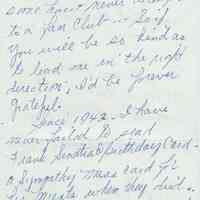 never
to a Fan Club - So if
you will be so kind as
to lead me in the right
direction, I'd be forever
grateful.
Since 1942 - I have
never failed to send
Frank Sinatra a birthday Card -
a Sympathy Mass Card for
his Parents when they died.